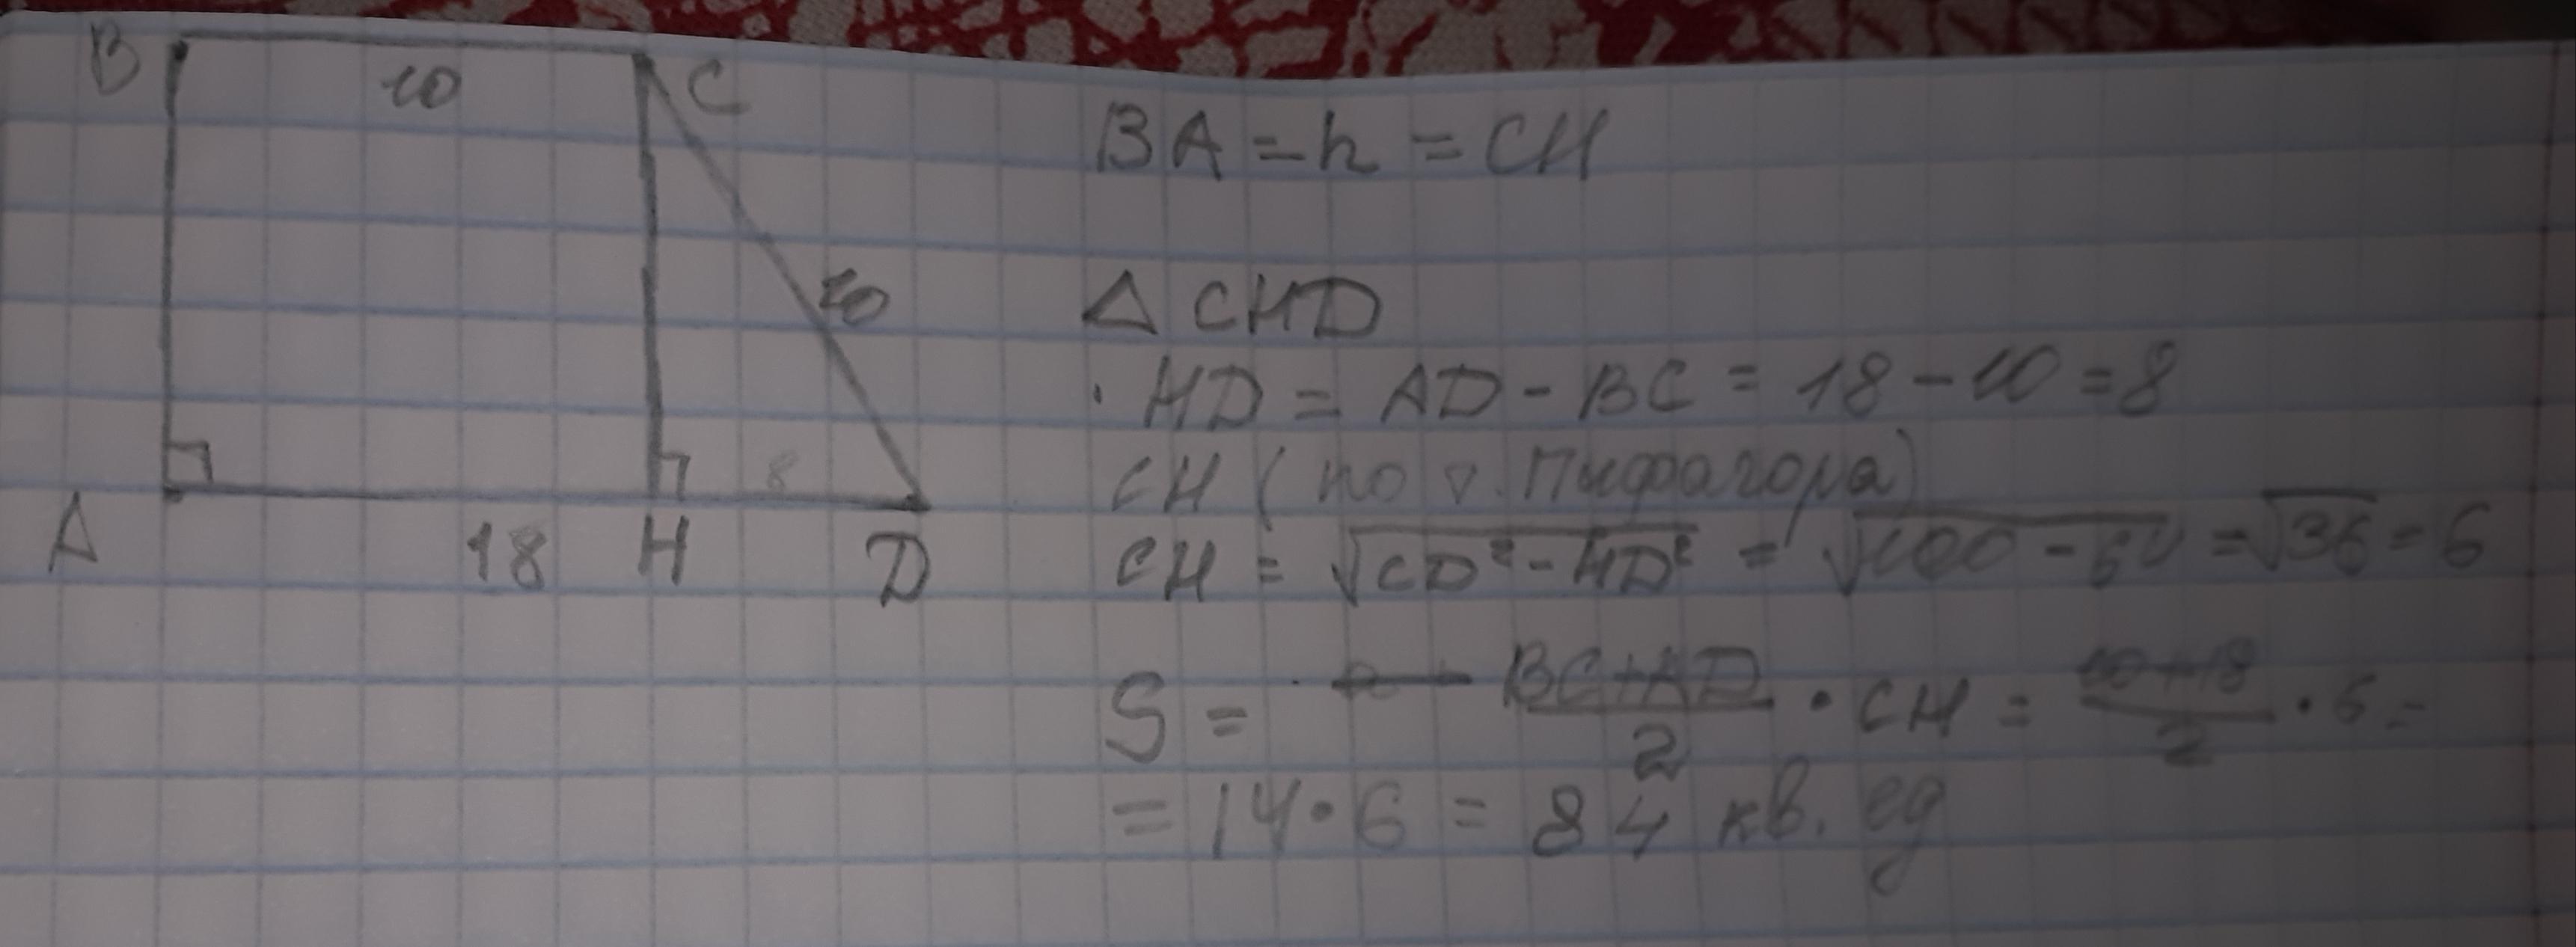 B
10
C
10
8
A
18
H
D
BA = h = CH
△ CHD
· HD = AD - BC = 18 - 10 = 8
CH (по т. Пифагора)
CH = √CD² - HD² = √100 - 64 = √36 = 6
S = BC+AD/2 · CH = 10+18/2 · 6 =
= 14 · 6 = 84 кв. ед